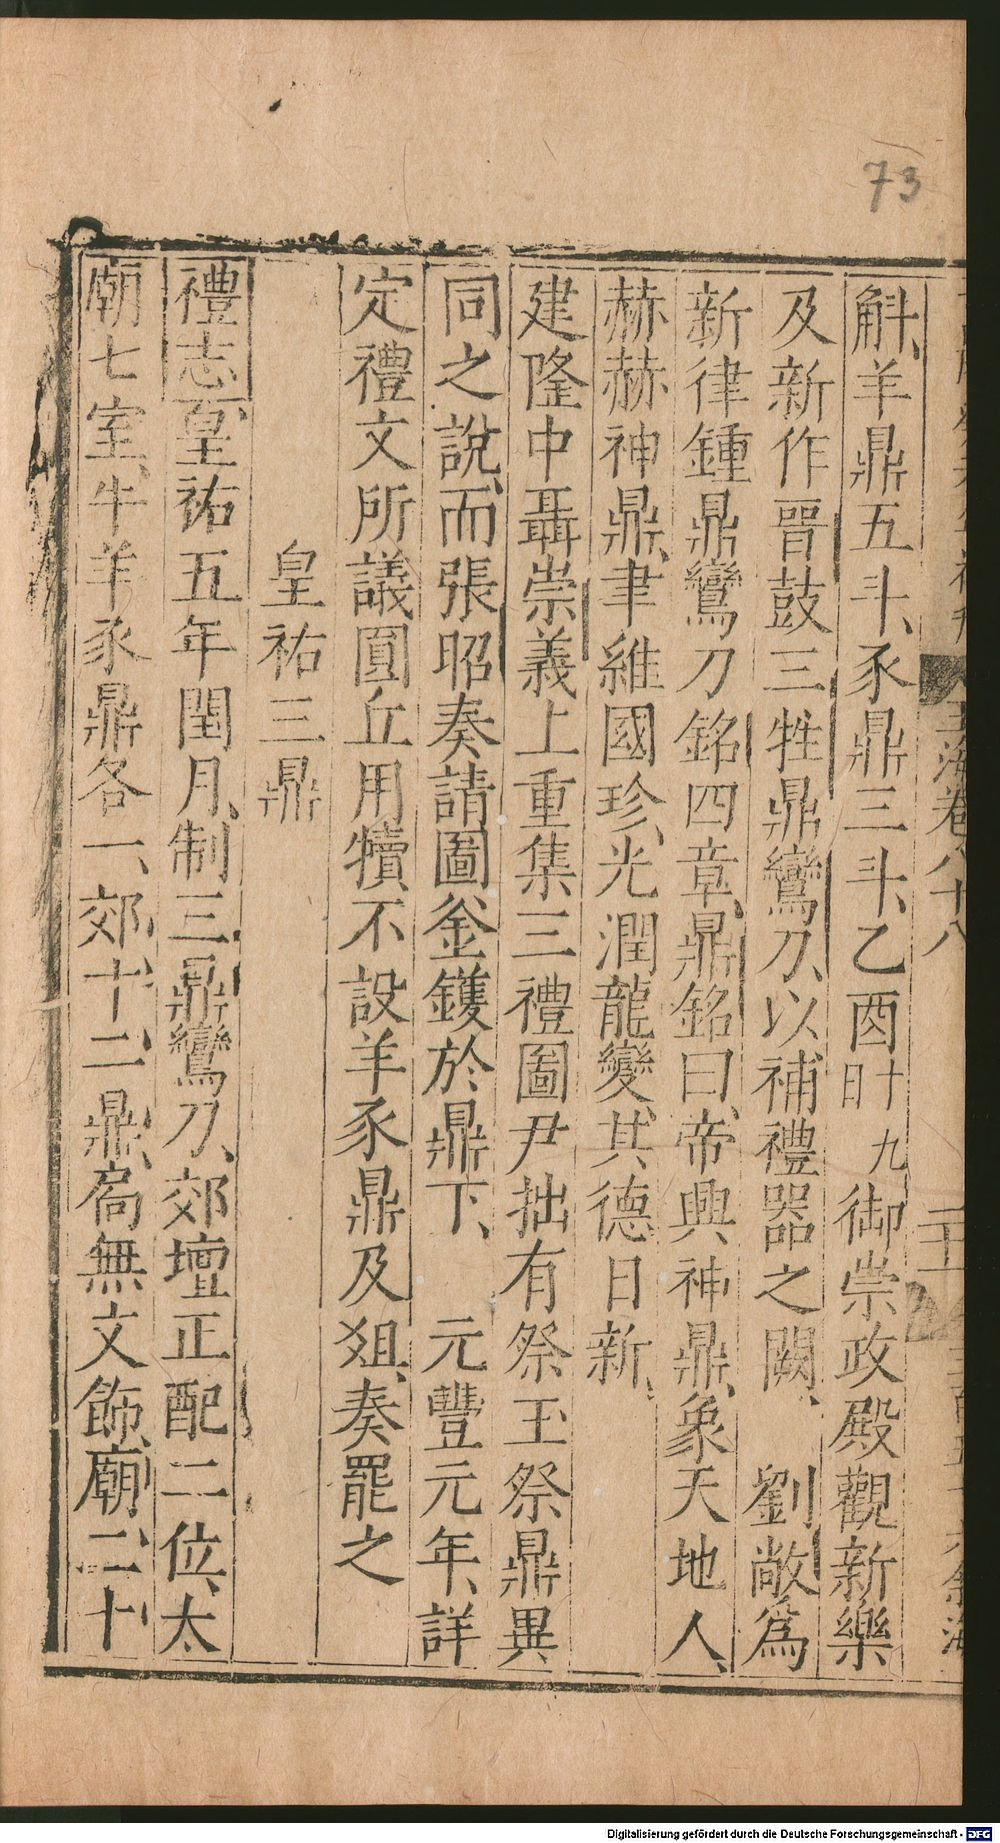 73
斛、羊鼎五斗、豕鼎三斗、乙酉十九日御崇政殿觀新樂
及新作晉鼓三牲鼎鸞刀、以補禮器之闕、　劉敞為
新律鍾鼎鸞刀銘四章、鼎銘曰、帝興神鼎、象天地人、
赫赫神鼎、聿維國珍、光潤龍變、其德日新、
建隆中聶崇義上重集三禮圖尹拙有祭玉祭鼎異
同之說、而張昭奏請圖釜鑊於鼎下、　元豐元年、詳
定禮文所議圓丘用犢、不設羊豕鼎及俎、奏罷之
皇祐三鼎
禮志、皇祐五年閏月、制三鼎鸞刀、郊壇正配二位、太
廟七室、牛羊豕鼎各一、郊、十二鼎、扃無文飾、廟、二十
玉海卷八十八
Digitalisierung gefördert durch die Deutsche Forschungsgemeinschaft - DFG